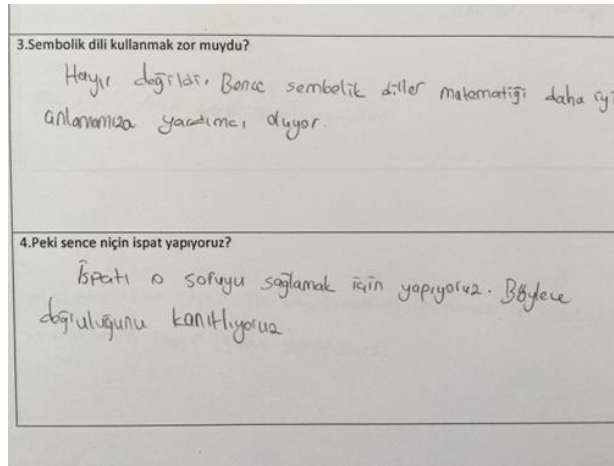 3.Sembolik dili kullanmak zor muydu?
Hayır değildi. Bence sembolik diller matematiği daha iyi
anlamamıza yardımcı oluyor.
4.Peki sence niçin ispat yapıyoruz?
İspatı o soruyu sağlamak için yapıyoruz. Böylece
doğruluğunu kanıtlıyoruz